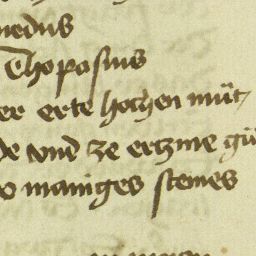 nedus
Thopasius
er erte hochen müt
de vnd ze ertzine gü
o maniges steines